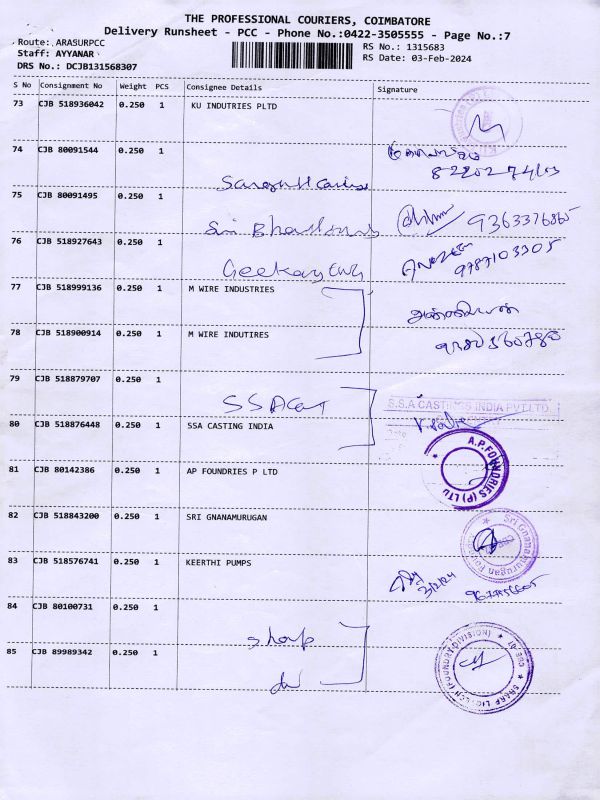 THE PROFESSIONAL COURIERS, COIMBATORE
Delivery Runsheet - PCC - Phone No.:0422-3505555 - Page No.:7
Route: ARASURPCC
RS No.: 1315683
Staff: AYYANAR
RS Date: 03-Feb-2024
DRS No.: DCJB131568307
S No Consignment No Weight PCS Consignee Details Signature
73 CJB 518936042 0.250 1 KU INDUTRIES PLTD
74 CJB 80091544 0.250 1
75 CJB 80091495 0.250 1
9363376865
76 CJB 518927643 0.250 1 Geekay
9787103305
77 CJB 518999136 0.250 1 M WIRE INDUSTRIES
78 CJB 518900914 0.250 1 M WIRE INDUTIRES
79 CJB 518879707 0.250 1 SSA Cast
S.S.A CASTINGS INDIA PVT LTD.
80 CJB 518876448 0.250 1 SSA CASTING INDIA
81 CJB 80142386 0.250 1 AP FOUNDRIES P LTD
A.P.FOUNDRIES (P) LTD
82 CJB 518843200 0.250 1 SRI GNANAMURUGAN
Sri Gnanamurugan
83 CJB 518576741 0.250 1 KEERTHI PUMPS
3/2/24
84 CJB 80100731 0.250 1 sharp
85 CJB 89989342 0.250 1 do
(FOUNDRY DIVISION)